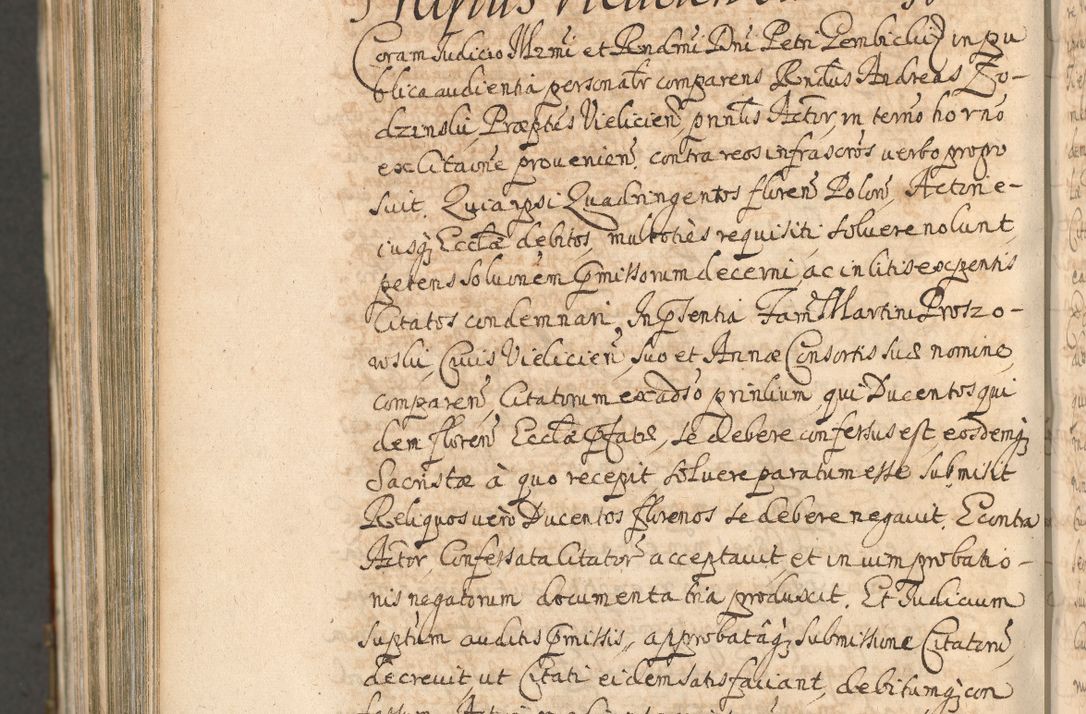 Coram Judicio Illrmi et Rndmi Dni Petri Gembicki in pu
blica audientia personalr comparens Rndus Andreas Zo-
dzinski, Præptus Vieliciens, pnnlis Actor, in terno horno
ex citaone provenien, contra reos infrascros verbo propo
suit. Quia ipsi Quadringentos floren Polon, Actori e-
iusq Ecclæ debitos, multoties requisiti solvere nolunt,
petens soluonem pmissorum decerni, ac in litis expensis
Citatos condemnari. In pssentia Fam Martini Proszo-
wski, Civis Vielicien, suo et Annæ Consortis suæ nomine
comparen, Citatorum ex adso prinlium, qui Ducentos qui
dem floren Ecclæ pfatæ, se debere confessus est, eosdemq
Sacristæ à quo recepit solvere paratum esse submisit
Reliquos vero Ducentos florenos se debere negavit. E contra
Actor, Confessata Citator acceptavit et in vim probatio-
nis negatorum documenta tria produxit. Et Judicium
suptum auditis pmissis, approbatâq submissione Citatoru,
decrevit ut Citati eidem satisfaciant, debitumq con